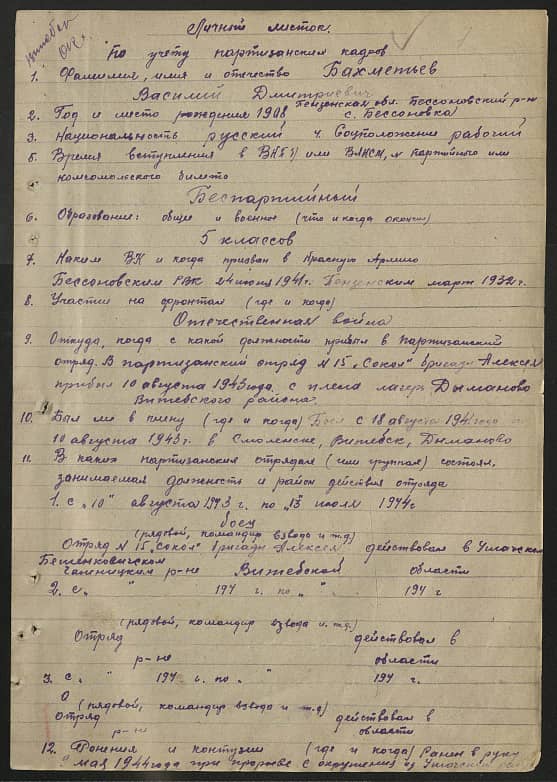 Витебск
Личный листок.
По учету партизанских кадров
1. Фамилия, имя и отечество Бахметьев
Василий Дмитриевич
2. Год и место рождения 1908 Пензенская обл. Бессоновский р-н
с. Бессоновка
3. Национальность русский 4. Соцположение рабочий
5. Время вступления в ВКП(б) или ВЛКСМ, № партийного или
комсомольского билета
Беспартийный
6. Образование: общее и военное (что и когда окончил)
5 классов
7. Каким ВК и когда призван в Красную Армию
Бессоновским РВК 24 июня 1941г. Пензенским март 1932 г.
8. Участие на фронтах (где и когда)
Отечественная война
9. Откуда, когда с какой должности прибыл в партизанский
отряд. В партизанский отряд N 15 „Сокол" бригады Алексея
прибыл 10 августа 1943 года, с плена лагерь Дыманово
Витебского района.
10. Был ли в плену (где и когда) Был с 18 августа 1941 года
10 августа 1943 г. в Смоленске, Витебск, Дыманово
11. В каких партизанских отрядах (или группах) состоял,
занимаемая должность и район действия отряда
1. с „10" августа 1943 г. по „15" июля 1944 г
боец
(рядовой, командир взвода и т.д.)
Отряд N 15 „Сокол" бригады Алексея действовал в Ушачском
Бешенковичском
Чашницким р-не Витебской области
2. с „ " 194 г. по „ " 194 г
(рядовой, командир взвода и т.д.)
Отряд действовал в
р-не области
3. с „ " 194 г. по „ " 194 г.
О (рядовой, командир взвода и т.д)
Отряд действовал в
р-не области
12. Ранения и контузии (где и когда) Ранен в руку
мая 1944 года при прорыве с окружения в Ушачский